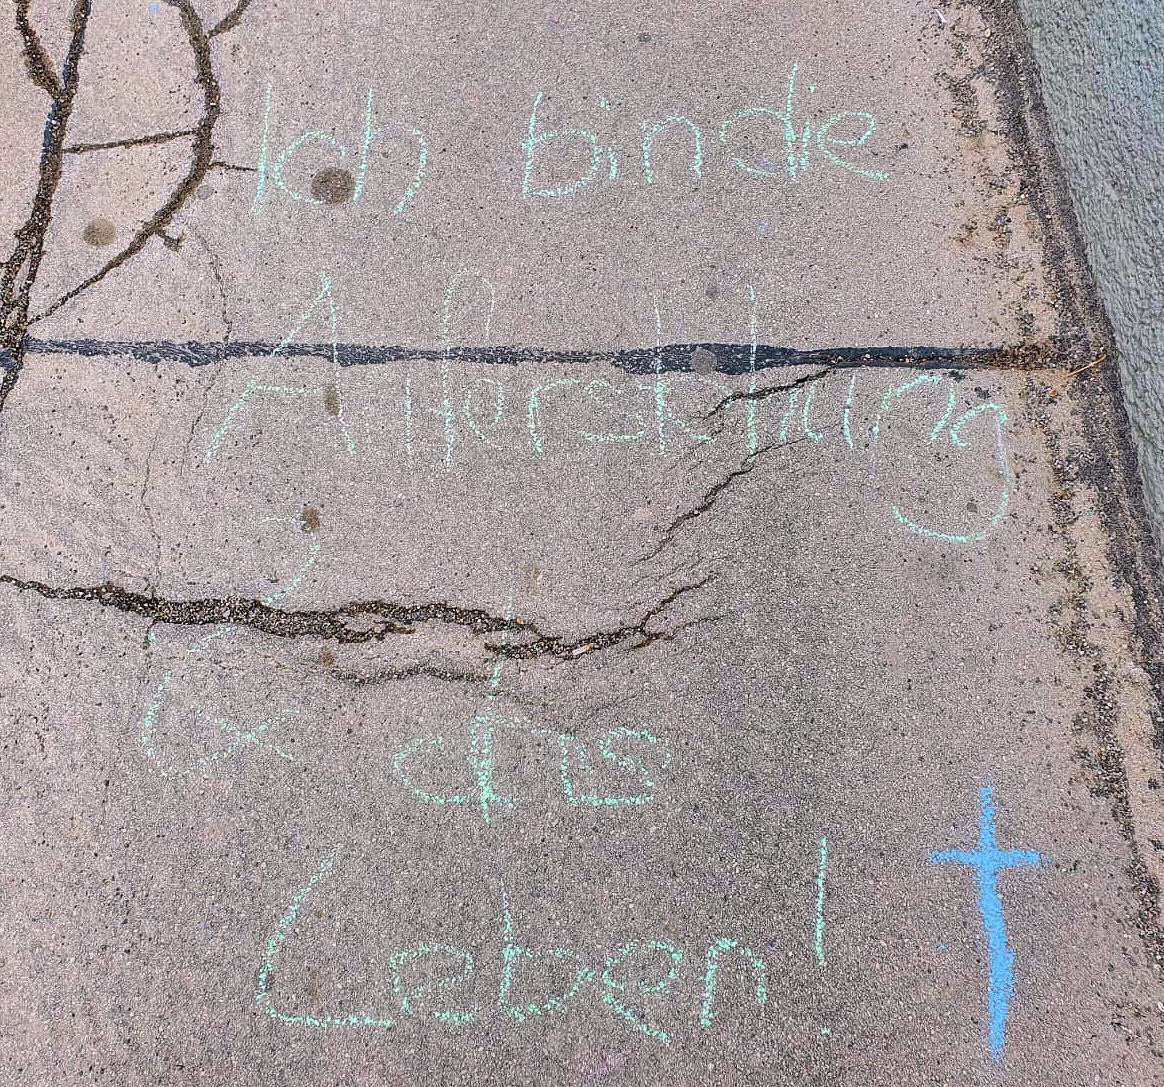 Ich bin die
Auferstehung
& das
Leben!